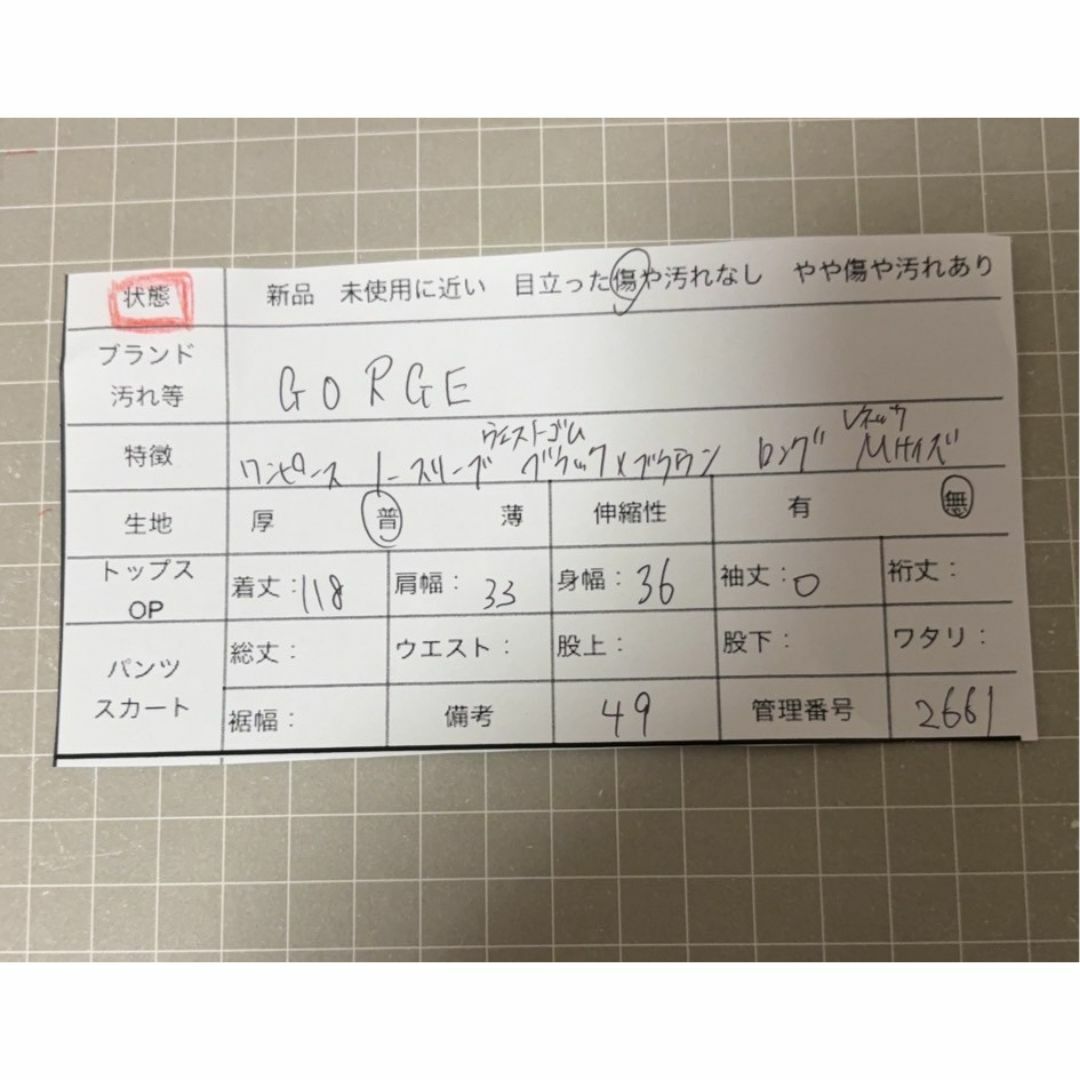 状態 新品 未使用に近い 目立った傷や汚れなし やや傷や汚れあり
ブランド
汚れ等 GORGE
ウエストゴム Vネック
特徴 ワンピース ノースリーブ ブラック×ブラウン ロング Mサイズ
生地 厚 普 薄 伸縮性 有 無
トップス
OP 着丈：118 肩幅：33 身幅：36 袖丈：0 裄丈：
総丈： ウエスト： 股上： 股下： ワタリ：
パンツ
スカート
裾幅： 備考 49 管理番号 2661